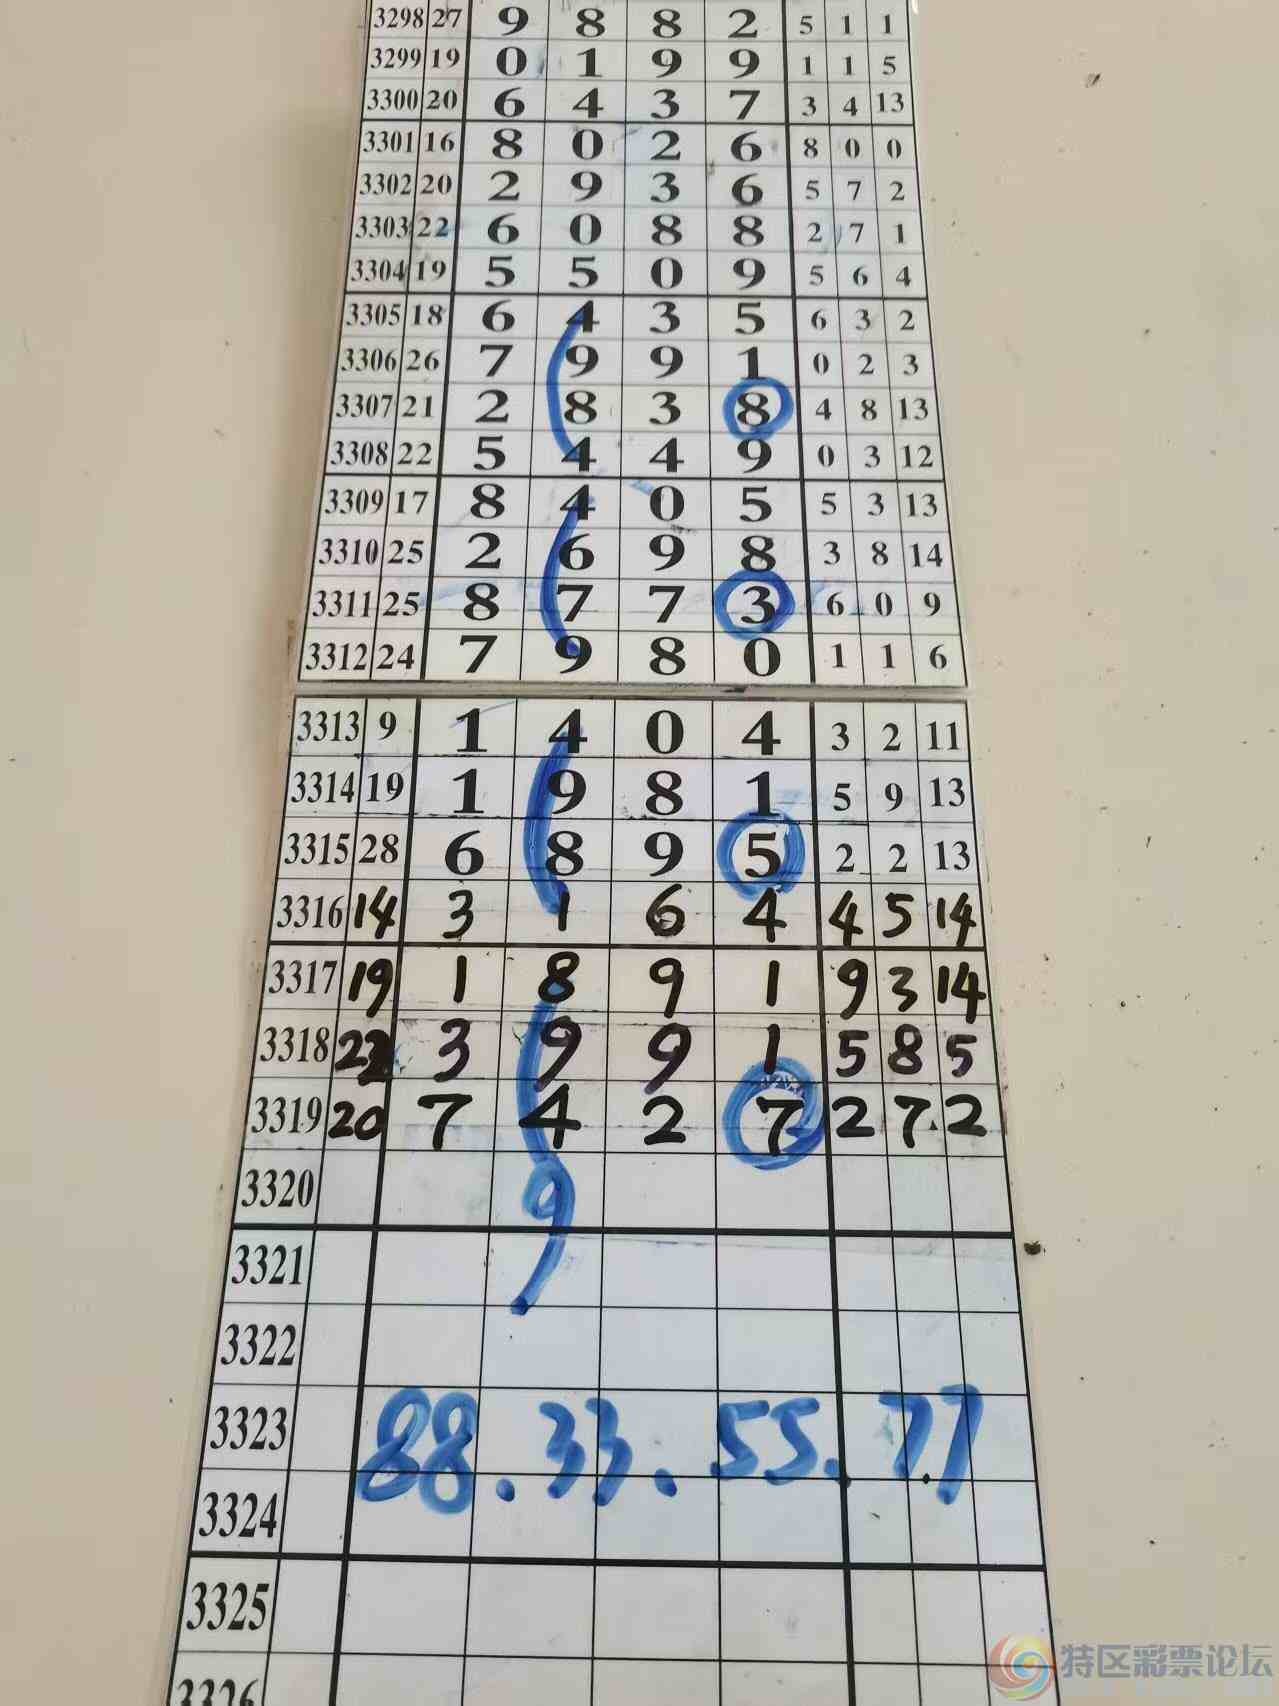 3298 27 9 8 8 2 5 1 1
3299 19 0 1 9 9 1 1 5
3300 20 6 4 3 7 3 4 13
3301 16 8 0 2 6 8 0 0
3302 20 2 9 3 6 5 7 2
3303 22 6 0 8 8 2 7 1
3304 19 5 5 0 9 5 6 4
3305 18 6 4 3 5 6 3 2
3306 26 7 9 9 1 0 2 3
3307 21 2 8 3 8 4 8 13
3308 22 5 4 4 9 0 3 12
3309 17 8 4 0 5 5 3 13
3310 25 2 6 9 8 3 8 14
3311 25 8 7 7 3 6 0 9
3312 24 7 9 8 0 1 1 6
3313 9 1 4 0 4 3 2 11
3314 19 1 9 8 1 5 9 13
3315 28 6 8 9 5 2 2 13
3316 14 3 1 6 4 4 5 14
3317 19 1 8 9 1 9 3 14
3318 22 3 9 9 1 5 8 5
3319 20 7 4 2 7 2 7 2
3320 9
3321
3322
3323
88.33.55.77
3324
3325
3326
特区彩票论坛